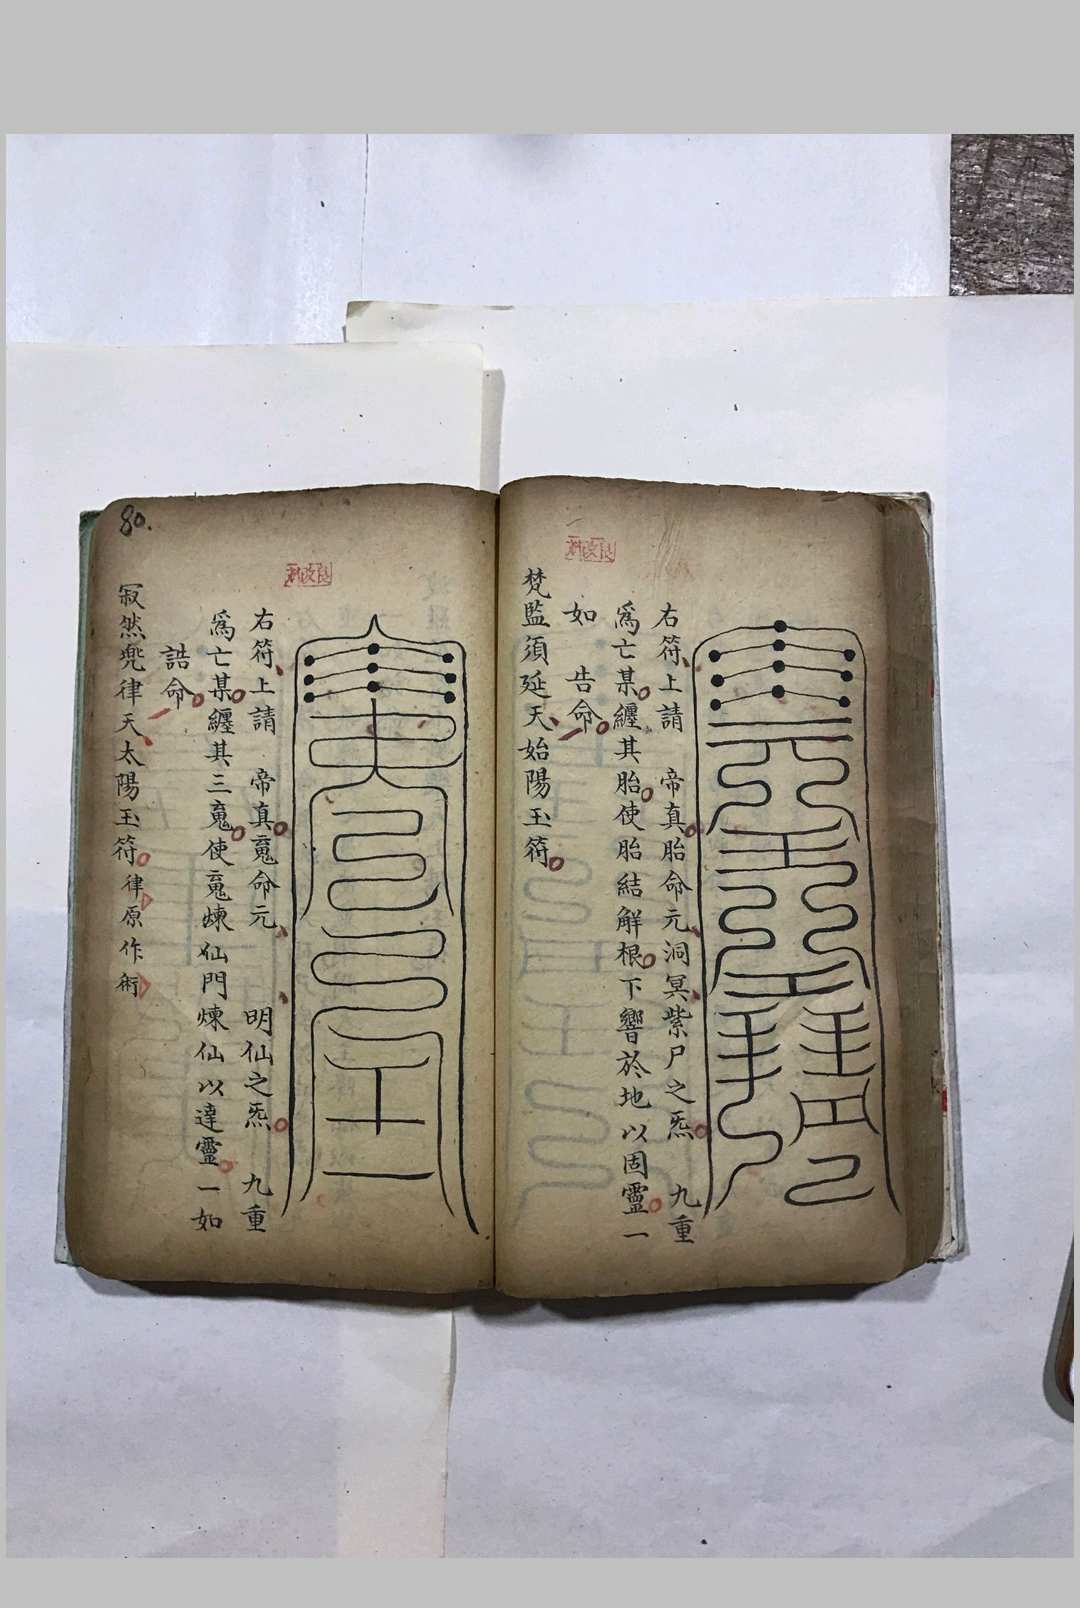 右符上請 帝真胎命元洞冥紫尸之炁 九重
爲亡某纏其胎使胎結解根下響於地以固靈一
如 告命
梵監須延天始陽玉符
右符上請 帝真䰢命元 明仙之炁 九重
爲亡某纏其三䰢使䰢煉仙門煉仙以達靈一如
誥命
寂然兠律天太陽玉符律原作術
80.